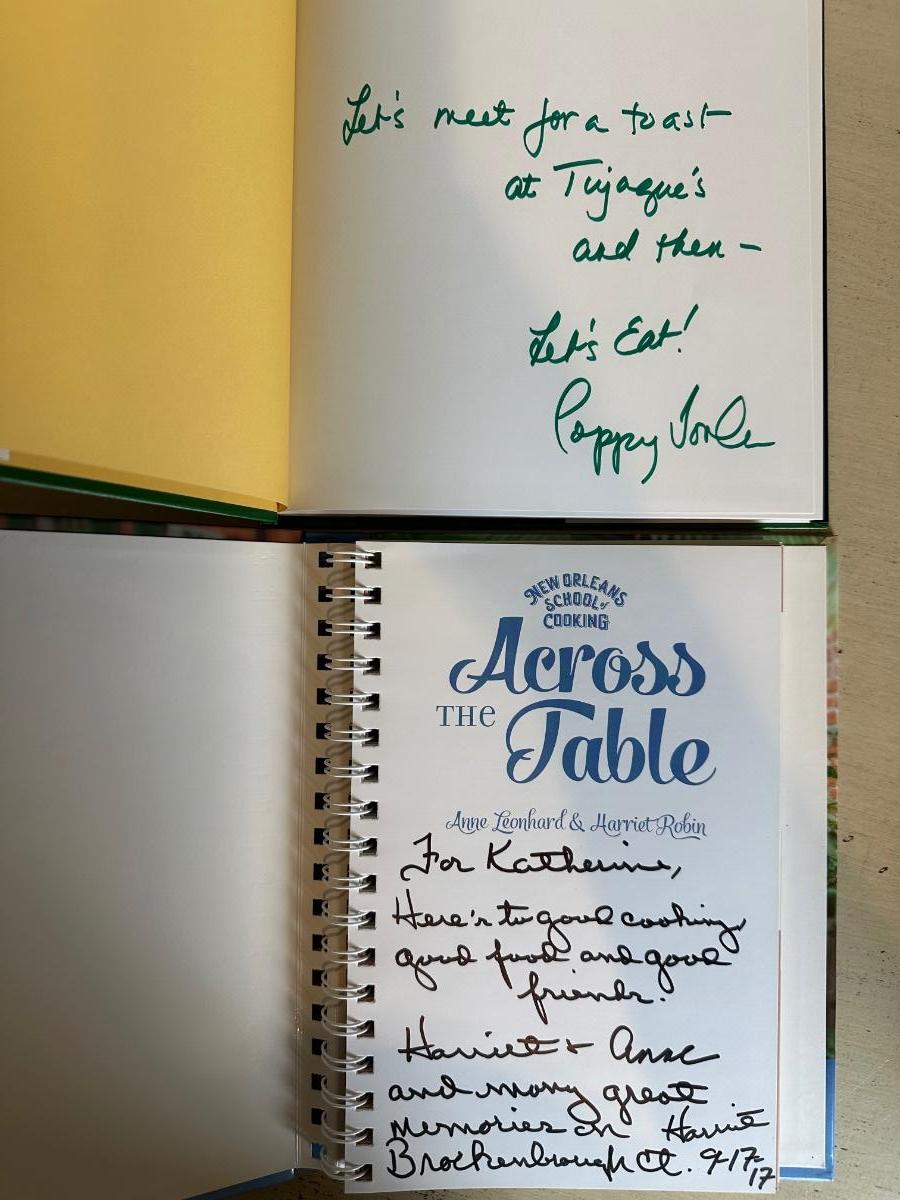 Let's meet for a toast
at Tujaque's
and then –
Let's Eat!
Poppy Tooker
NEW ORLEANS
SCHOOL of
COOKING
Across
THE
Table
Anne Leonhard & Harriet Robin
For Katherine,
Here's to good cooking,
good food and good
friends.
Harriet + Anne
and many great
memories on Harriet
Brockenbrough Ct. 9-17-
17